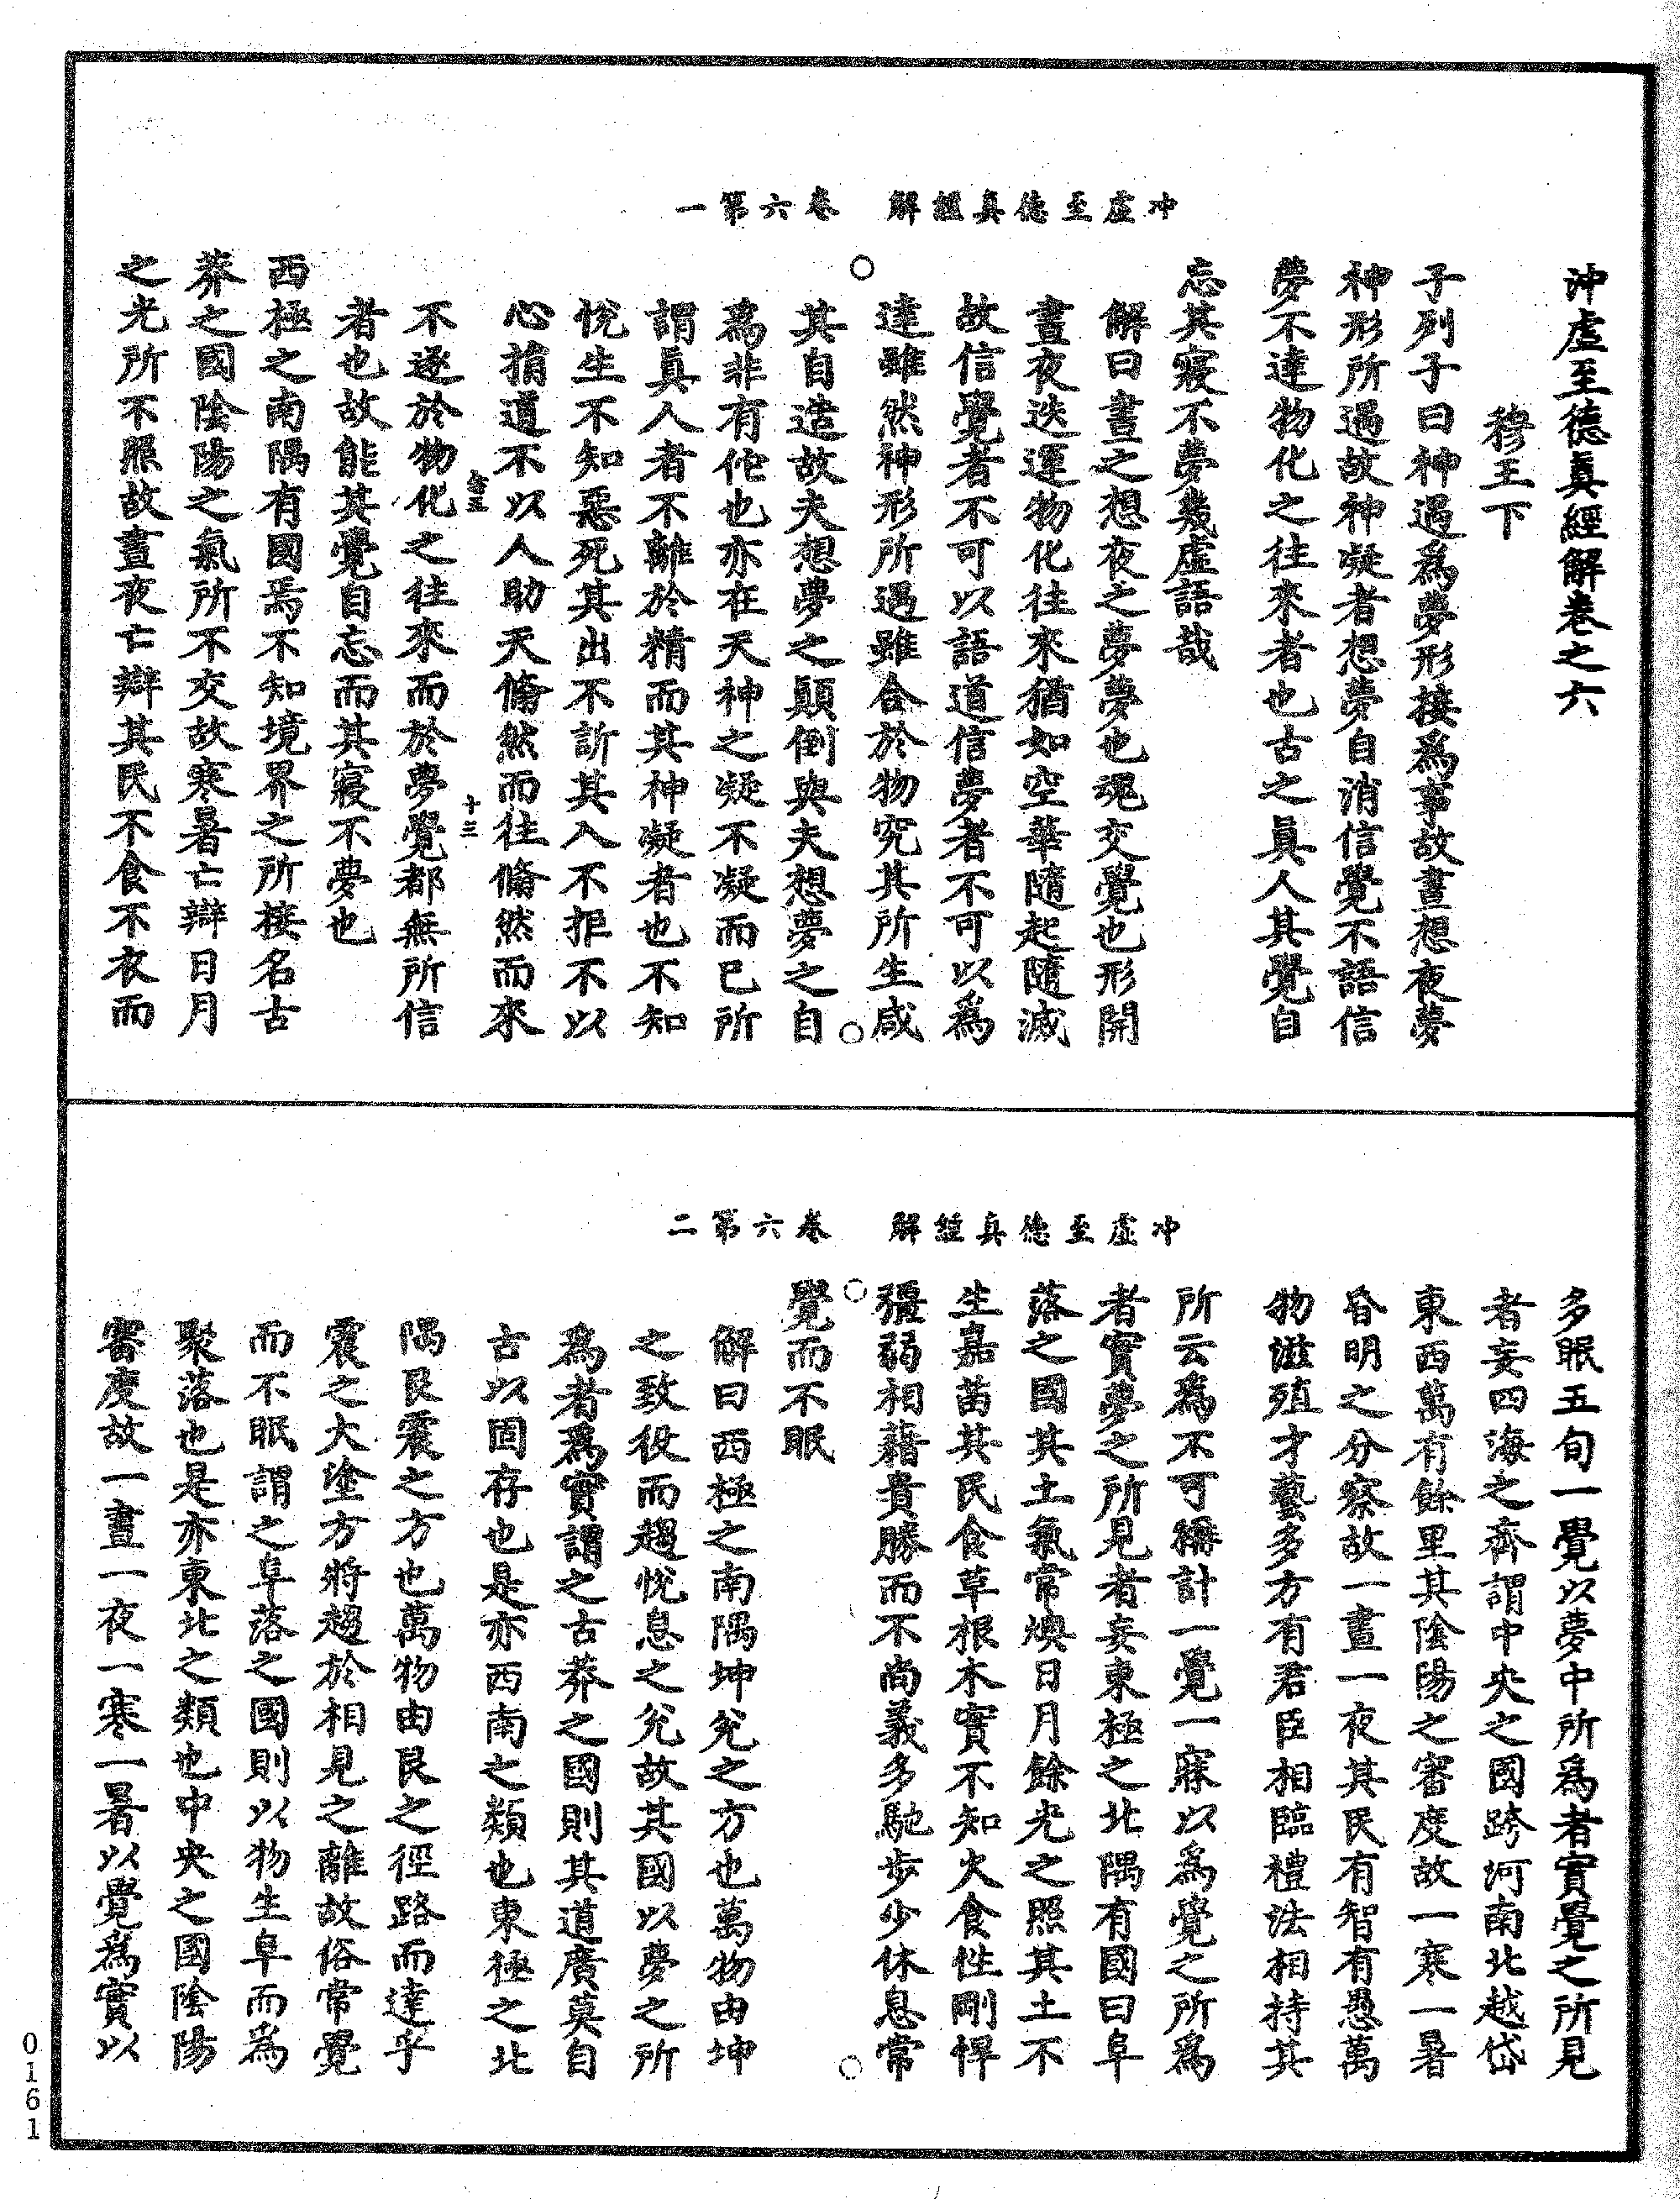 冲虛至德真經解　卷六第一
沖虛至德眞經解卷之六
穆王下
子列子曰神遇爲夢形接爲事故晝想夜夢
神形所遇故神凝者想夢自消信覺不語信
夢不達物化之往來者也古之眞人其覺自
忘其寢不夢幾虛語哉
解曰晝之想夜之夢夢也魂交覺也形開
晝夜迭運物化往來猶如空華隨起隨滅
故信覺者不可以語道信夢者不可以爲
達雖然神形所遇雖合於物究其所生咸
其自造故夫想夢之顛倒與夫想夢之自
爲非有佗也亦在天神之凝不凝而已所
謂眞人者不離於精而其神凝者也不知
悅生不知惡死其出不訢其入不拒不以
心捐道不以人助天翛然而往翛然而來
十三
不逐於物化之往來而於夢覺都無所信
者也故能其覺自忘而其寢不夢也
西極之南隅有國焉不知境界之所接名古
莽之國陰陽之氣所不交故寒暑亡辯日月
之光所不照故晝夜亡辯其民不食不衣而
冲虛至德真經解　卷六第二
多眠五旬一覺以夢中所爲者實覺之所見
者妄四海之齊謂中央之國跨河南北越岱
東西萬有餘里其陰陽之審度故一寒一暑
昏明之分察故一晝一夜其民有智有愚萬
物滋殖才藝多方有君臣相臨禮法相持其
所云爲不可稱計一覺一寐以爲覺之所爲
者實夢之所見者妄東極之北隅有國曰阜
落之國其土氣常燠日月餘光之照其土不
生嘉苗其民食草根木實不知火食性剛悍
彊弱相藉貴勝而不尚義多馳步少休息常
覺而不眠
解曰西極之南隅坤兌之方也萬物由坤
之致役而趨悅息之兌故其國以夢之所
爲者爲實謂之古莽之國則其道廣莫自
古以固存也是亦西南之類也東極之北
隅艮震之方也萬物由艮之徑路而達乎
震之大塗方將趨於相見之離故俗常覺
而不眠謂之阜落之國則以物生阜而爲
聚落也是亦東北之類也中央之國陰陽
審度故一晝一夜一寒一暑以覺爲實以
0161